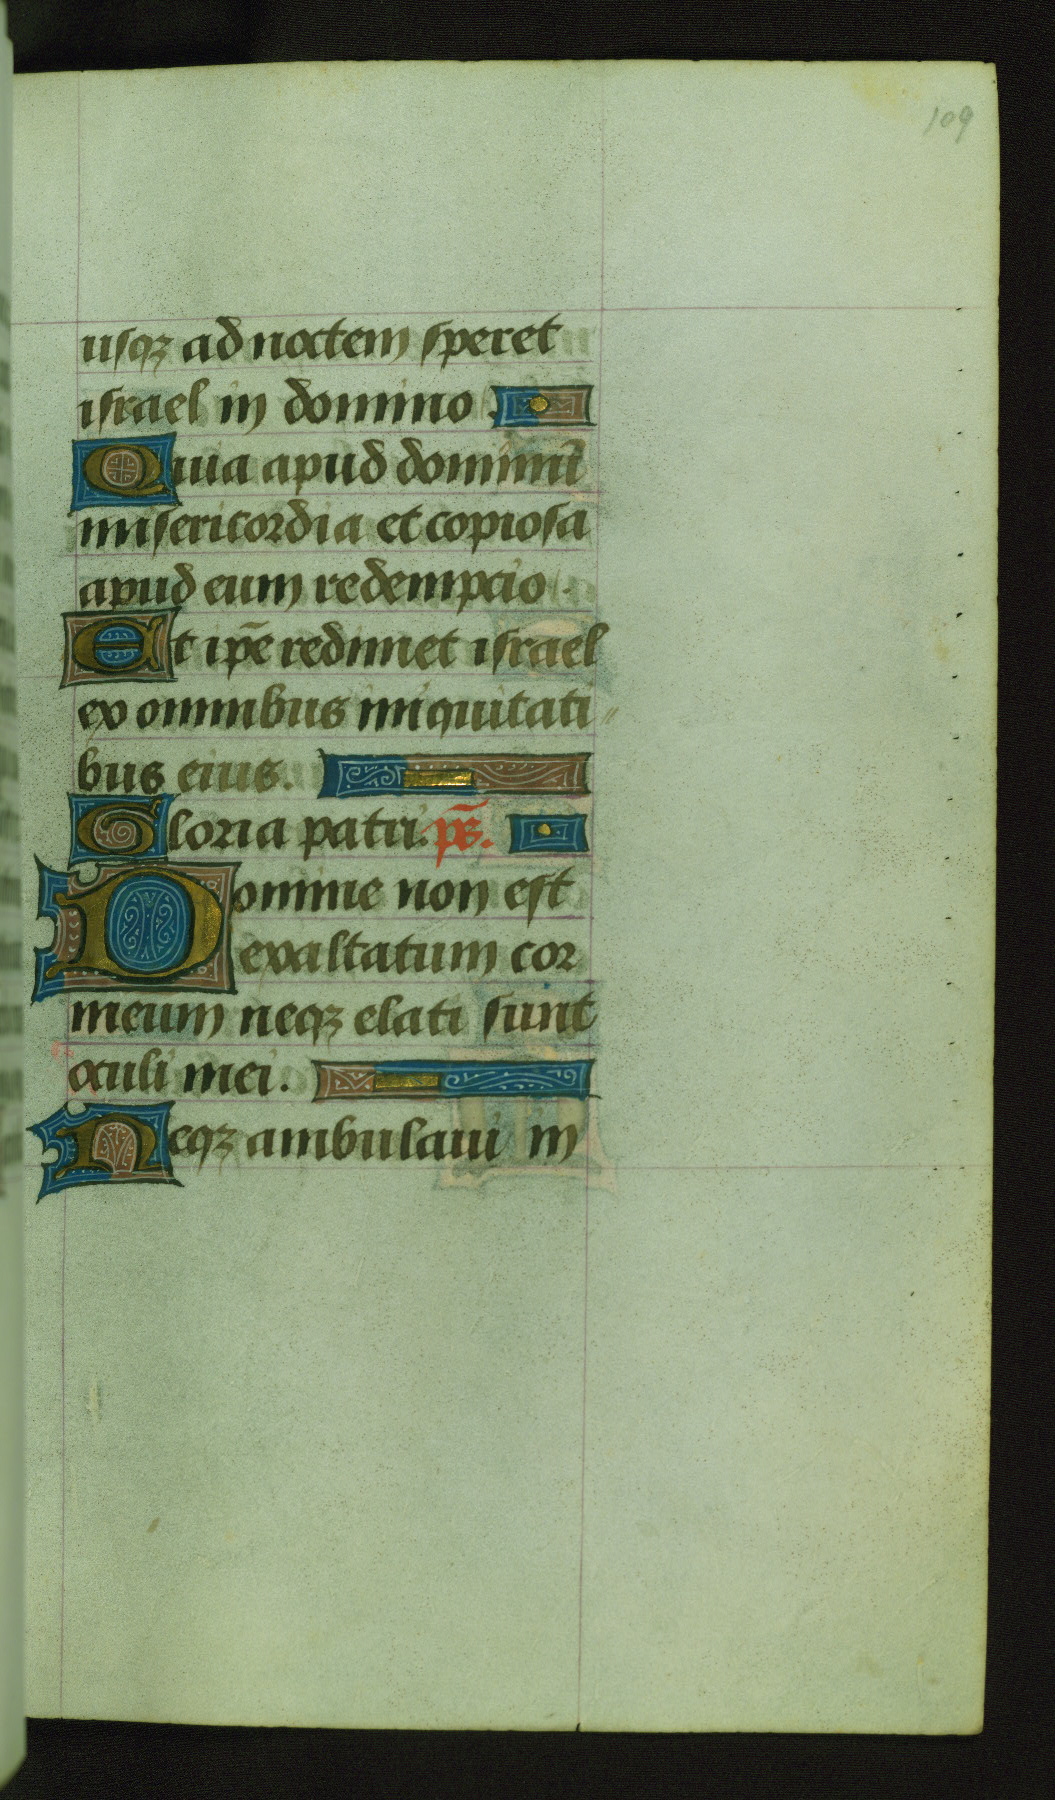 109
usqꝫ ad noctem speret
israel in domino.
Quia apud dominū
misericordia et copiosa
apud eum redempcio.
Et ip̄e redimet israel
ex omnibus iniquitati〃
bus eius.
Gloria patri. ps̄.
Domine non est
exaltatum cor
meum neqꝫ elati sunt
oculi mei.
Neqꝫ ambulaui in